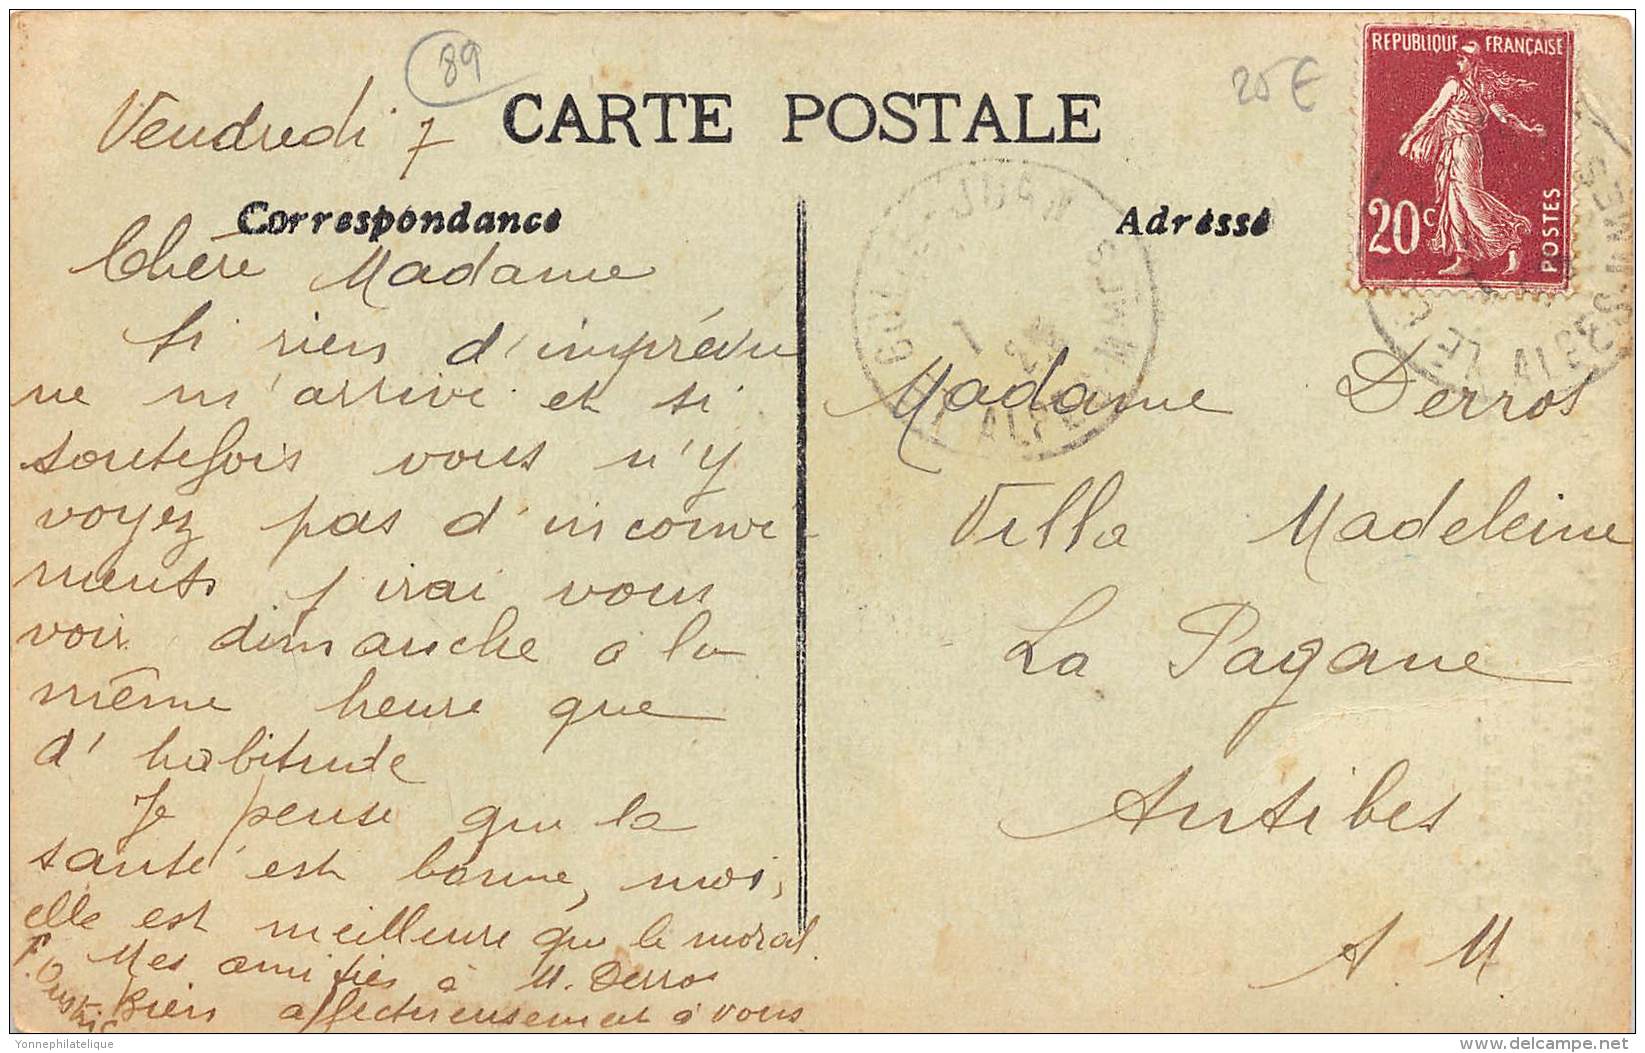 89
25 €
REPUBLIQUE FRANÇAISE
20c
POSTES
Vendredi 7
CARTE POSTALE
Correspondance
Adresse
Chère Madame
Si rien d'imprévu
ne m'arrive et si
toutefois vous n'y
voyez pas d'inconvé-
nients j'irai vous
voir dimanche à la
même heure que
d'habitude
Je pense que la
santé est bonne, moi,
elle est meilleure que le moral.
Mes amitiés à M. Derros
bien affectueusement à vous
Madame Derros
Villa Madeleine
La Pagane
Antibes
A. M
GOLFE-JUAN
ALPES-MMES
7
Yonnephilatelique
delcampe.net